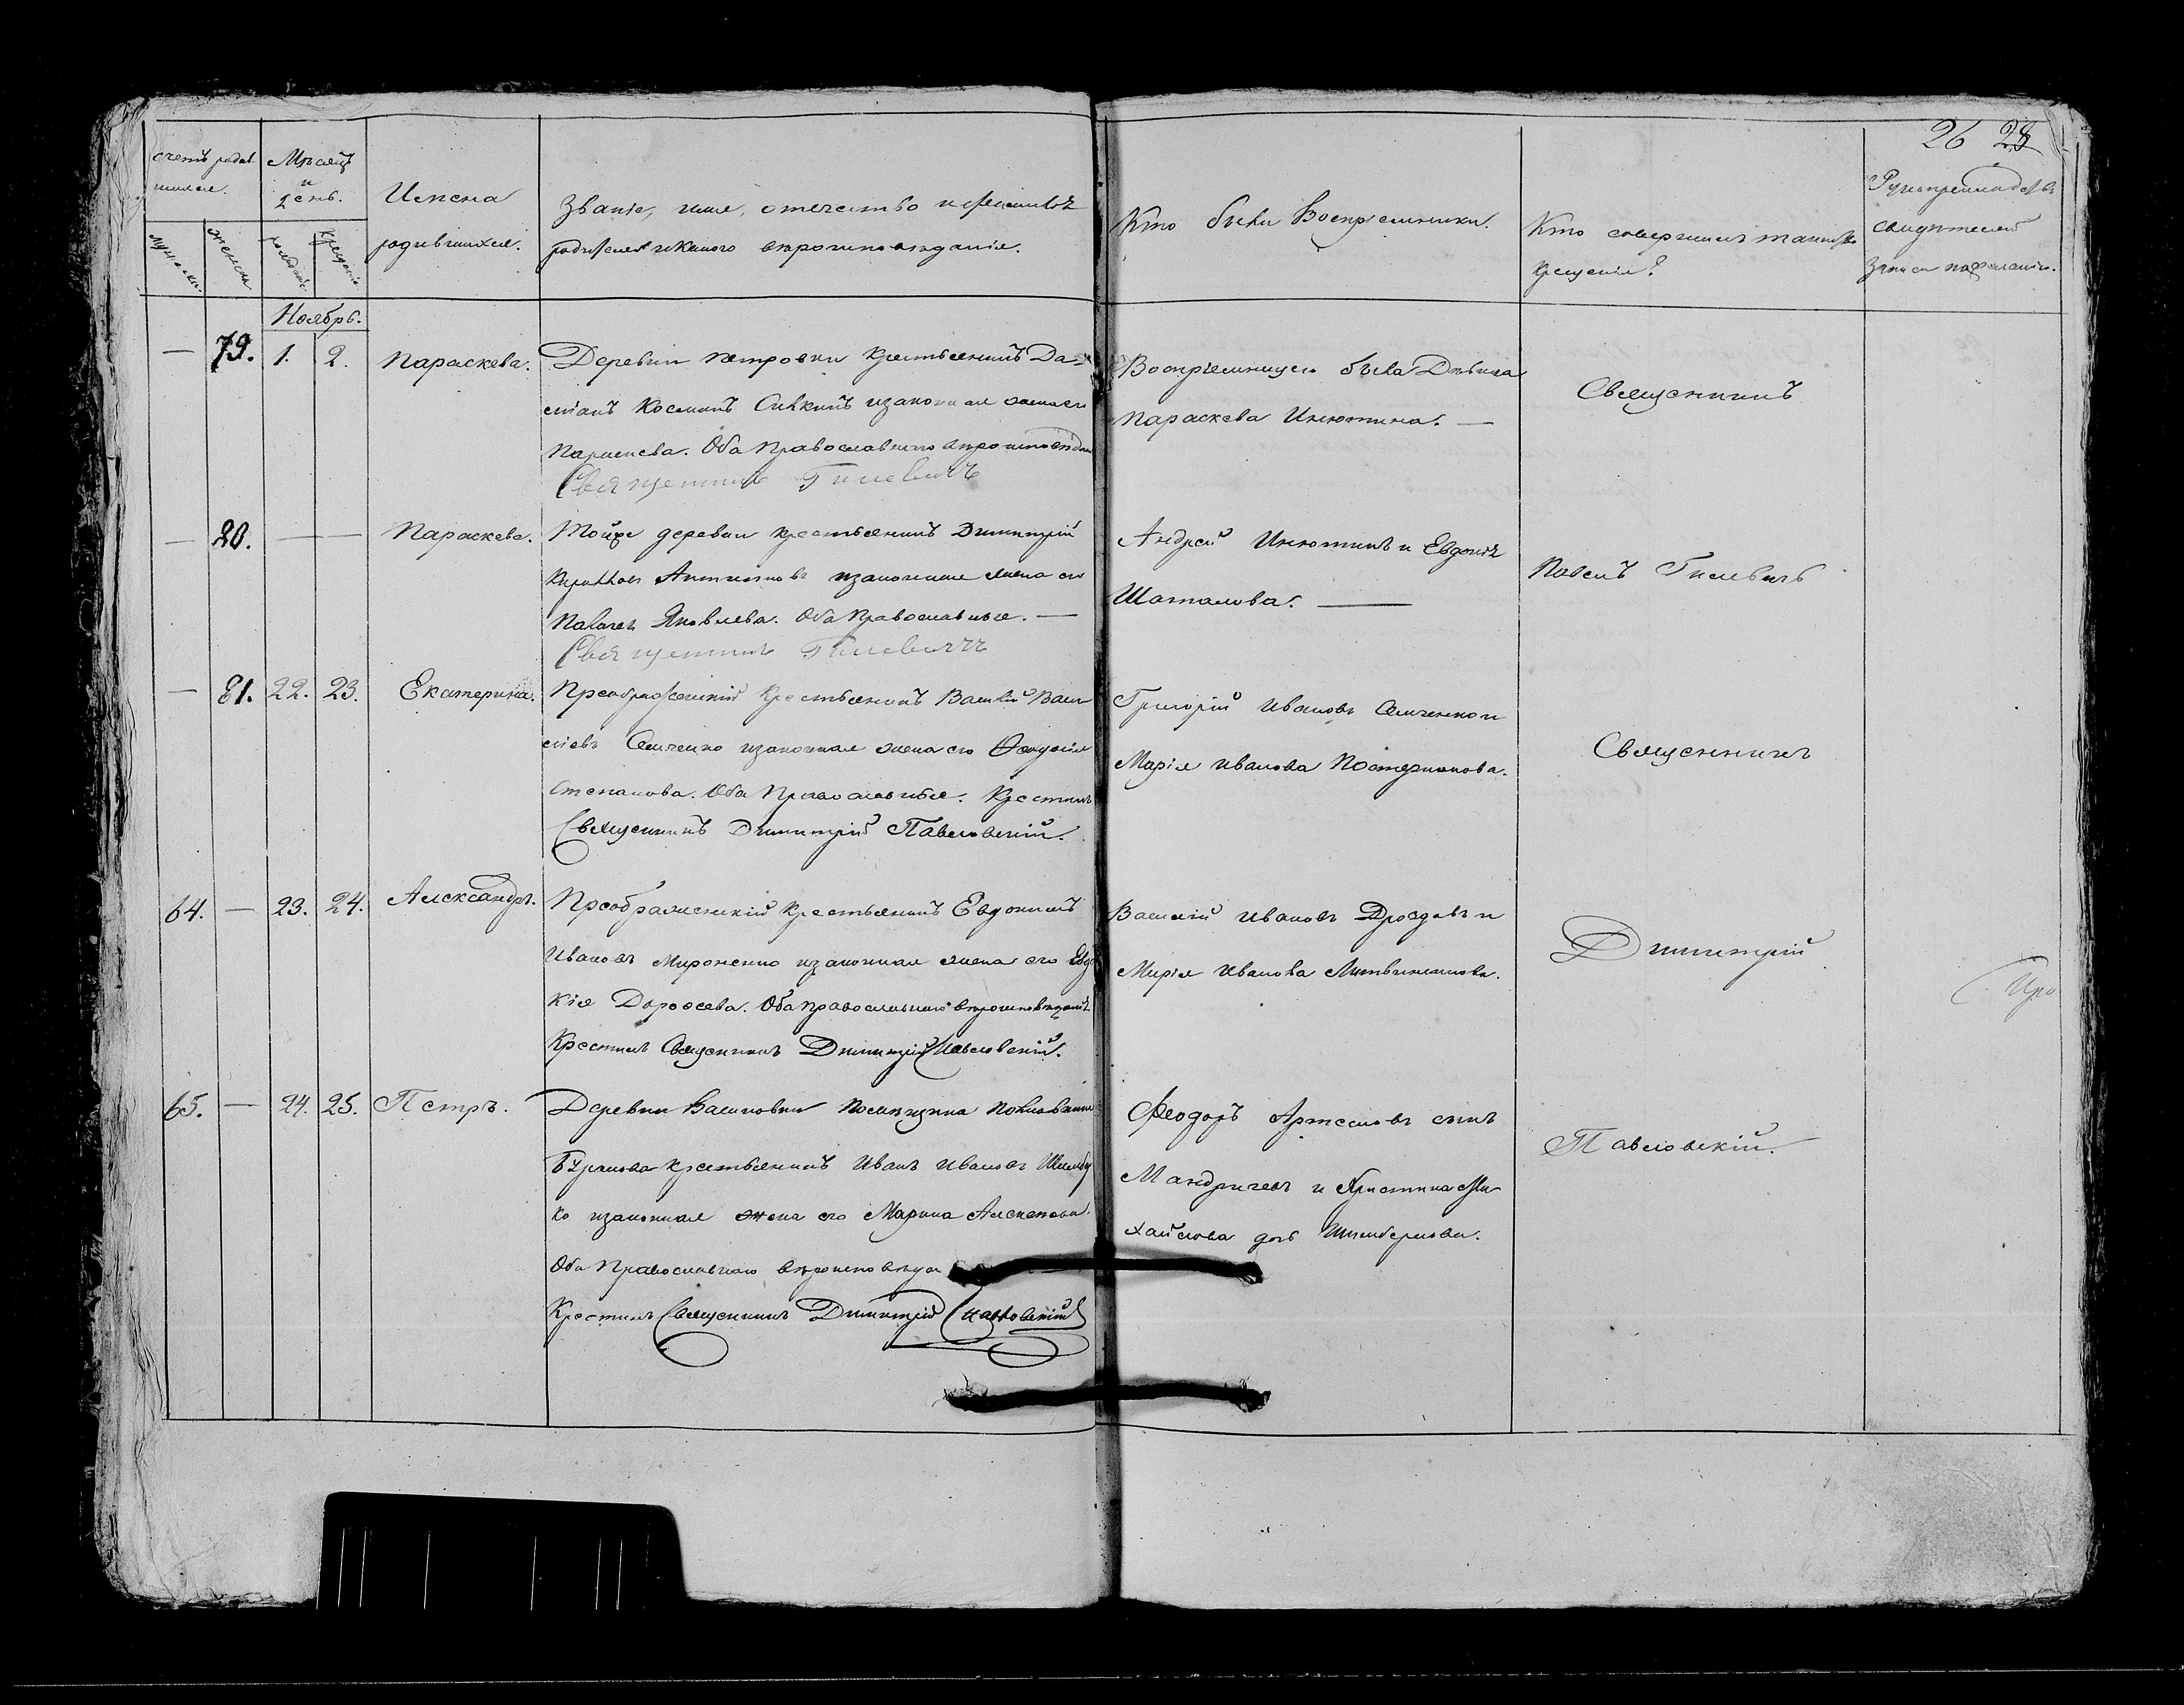 26 28
счетъ родив
шихся.
Мѣсяцъ
и
день.
Имена
родившихся.
Званіе, имя, отечество и фамилія
родителей и какого вѣроисповѣданія.
Кто были Воспріемники.
Кто совершилъ таинство
крещенія?
Рукоприкладство
свидѣтелей
записи по желанію.
мужеска.
женска
рожденія
крещенія
Ноябрь.
— 79. 1. 2. Параскева.
Деревни Петровки крестьянинъ Да-
Косминъ и законная жена его
Оба Православнаго вѣроисповѣдан
Священникъ Гилевичъ
Воспріемницею была Дѣвица
Параскева Инютина. —
Священникъ
— 80. — — Параскева.
Тойже деревни крестьянинъ Димитрій
Антиповъ и законная жена его
Яковлева. Оба Православные. —
Священникъ Гилевичъ
Андрей Инютинъ и Евдокія
Шаталова. —
Павелъ Гилевичъ
— 81. 22. 23. Екатерина.
Преображенскій крестьянинъ Василій Васи
ліевъ Семченко и законная жена его
Степанова. Оба Православные. Крестилъ
Священникъ Димитрій Павловскій.
Григорій Ивановъ Семченко и
Марія Иванова
Священникъ
64. — 23. 24. Александръ.
Преображенскій крестьянинъ Евдокимъ
Ивановъ Мироненко и законная жена его Евдо
кія Дорофеева. Оба Православнаго вѣроисповѣданія
Крестилъ Священникъ Димитрій Павловскій.
Василій Ивановъ Дроздовъ и
Марія Иванова Литвиненкова.
Димитрій
65. — 24. 25. Петръ.
Деревни Васиновки помѣщика
крестьянинъ Иванъ Ивановъ
ко и законная жена его Марина Алексѣева.
Оба Православнаго вѣроисповѣда
Крестилъ Священникъ Димитрій Павловскій
Феодоръ Артемовъ сынъ
Мандричевъ и Христина Ми
хайлова дочь
Павловскій.